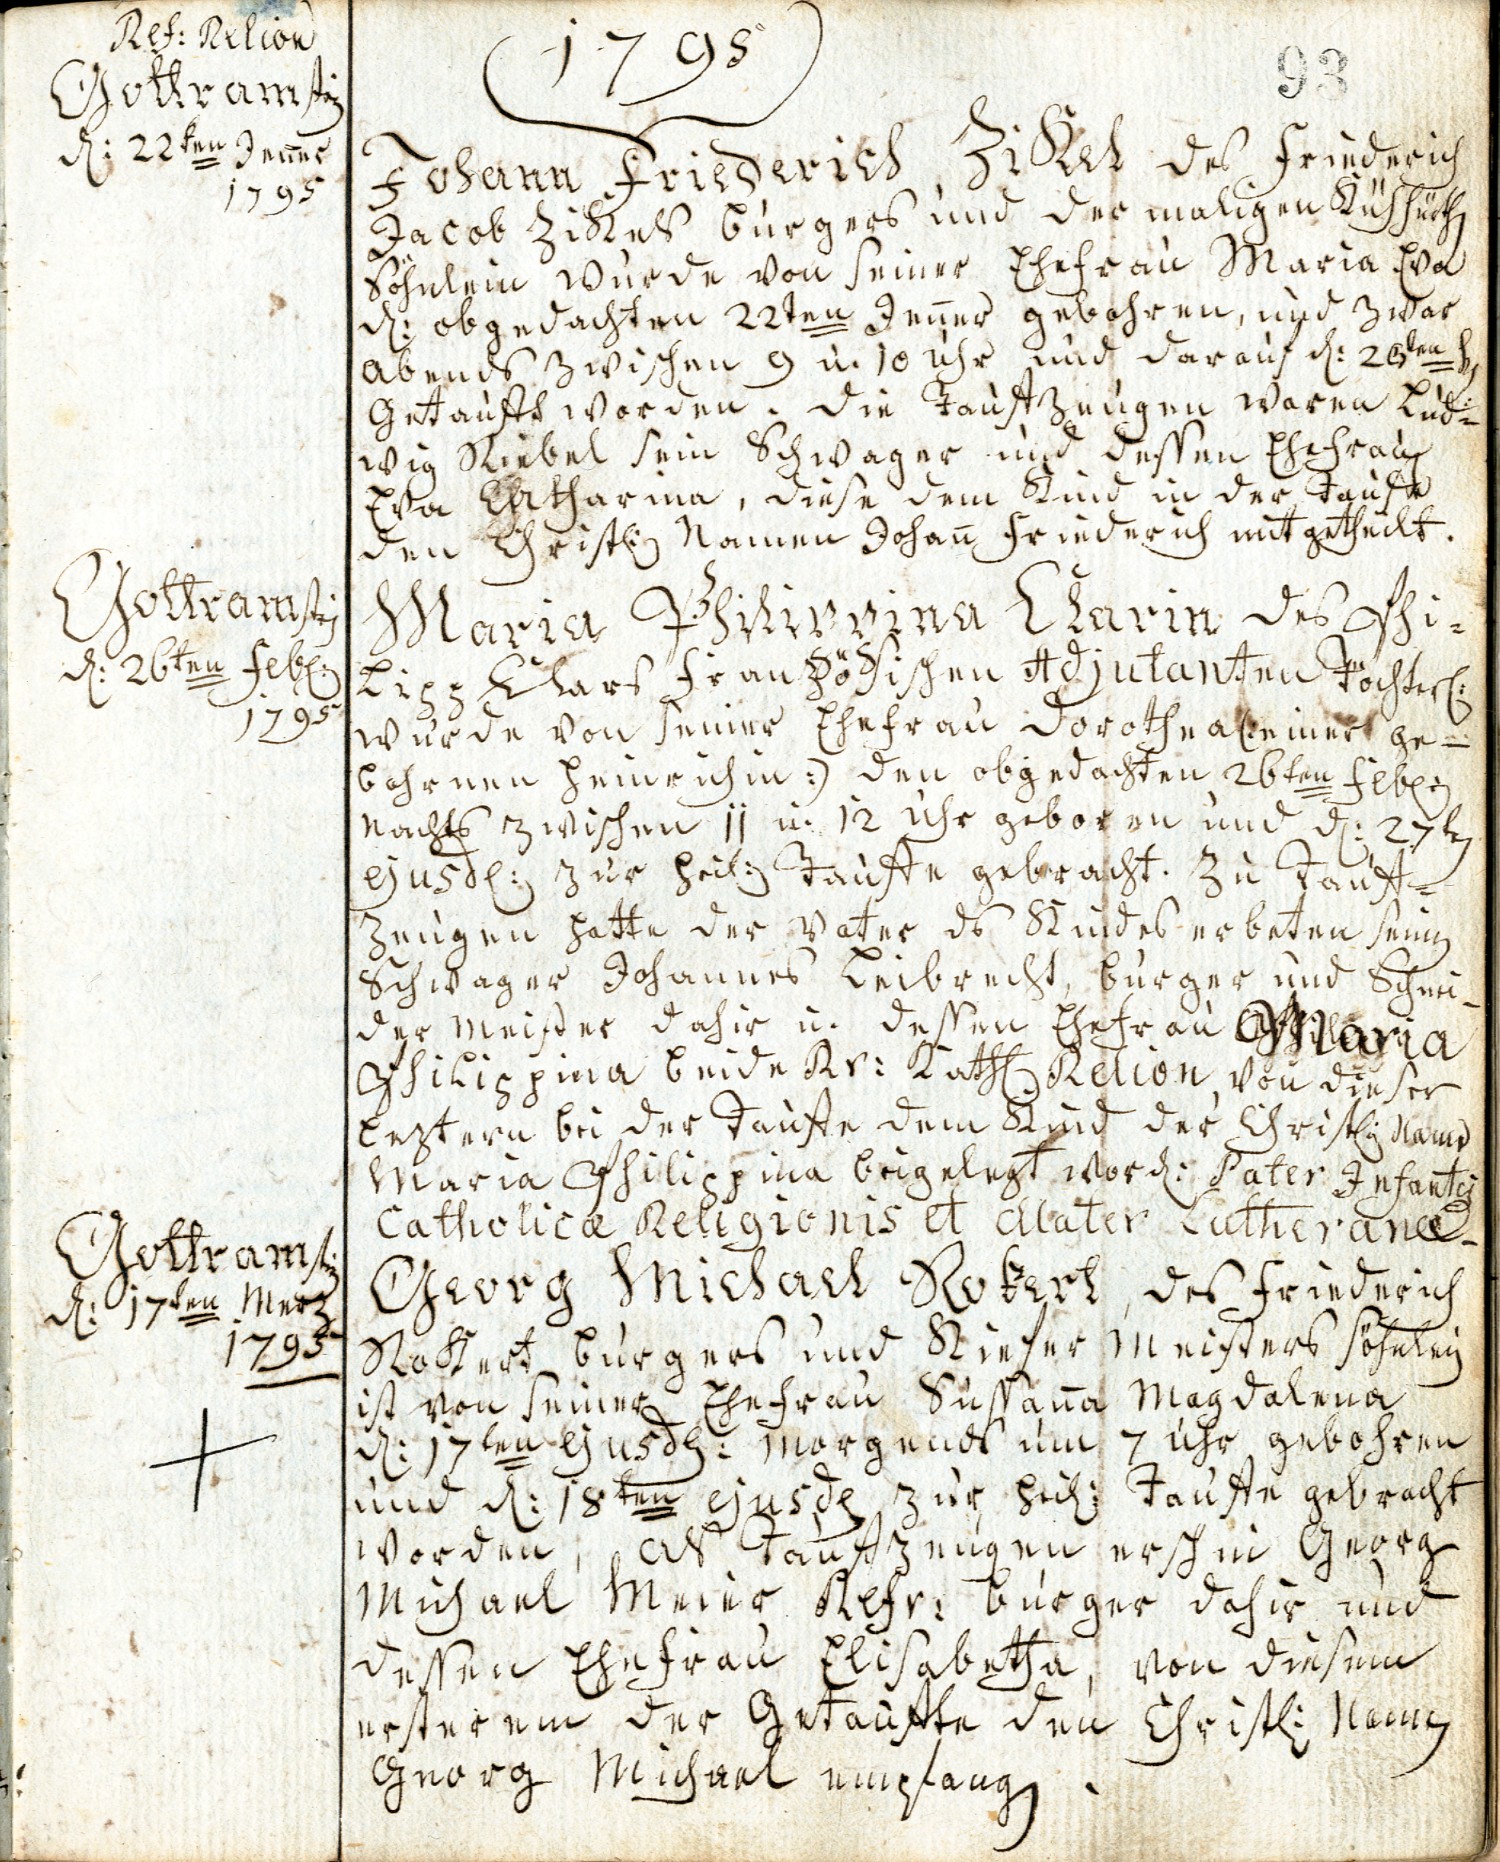 1795
93
Ref: Relion
Gottramst:
d: 22ten Jenner
1795
Johann Friederich Zikel des Friederich
Jacob Zikels burgers und der maligen Kühhirth
Söhnlein wurde von seiner Ehefrau Maria Eva
d: obgedachten 22ten Jenner gebohren, und zwar
abends zwischen 9 u. 10 Uhr und darauf d: 26ten
Getaufft worden. die Taufzeugen waren Lud=
wig Riebel sein Schwager und dessen Ehefrau
Eva Chatharina, diese dem Kind in der Taufe
den Christl: Namen Johann Friederich mitgetheilt.
Gottramst:
d: 26ten Feb:
1795
Maria Philippina Clarin des Phi=
lipp Clars Französischen Adjutanten Töchterl:
wurde von seiner Ehefrau Dorothea (einer ge=
bohrnen Heinrichin:) den obgedachten 26ten Feb:
nachts zwischen 11 u. 12 Uhr geboren und d: 27ten
ejusd: zur heil: Tauffe gebracht. Zu Tauff=
Zeugen hatte der Vater des Kindes erbeten seinen
Schwager Johannes Leibrecht, burger und Schnei=
der meister dahir u. dessen Ehefrau Maria
Philippina beide Rr: Kath: Relion, von dieser
leztern bei der Taufe dem Kind der Christl: Name
Maria Philippina beigelegt word: Pater Infantis
Catholicæ Religionis et Mater Lutheranæ.
Gottramst:
d: 17ten Merz
1795
Georg Michael Rokert, des Friederich
Rokert burgers und Kiefer Meisters söhnlein
ist von seiner Ehefrau Sussanna Magdalena
d: 17ten ejusd: morgends um 7 Uhr gebohren
und d: 18ten ejusd: zur heil: Tauffe gebracht
worden, als Taufzeugen erschin Georg
Michael Meier Refr: burger dahir und
dessen Ehefrau Elisabetha, von diesem
ersterem der Getaufte den Christl: Namen
Georg Michael empfangen.